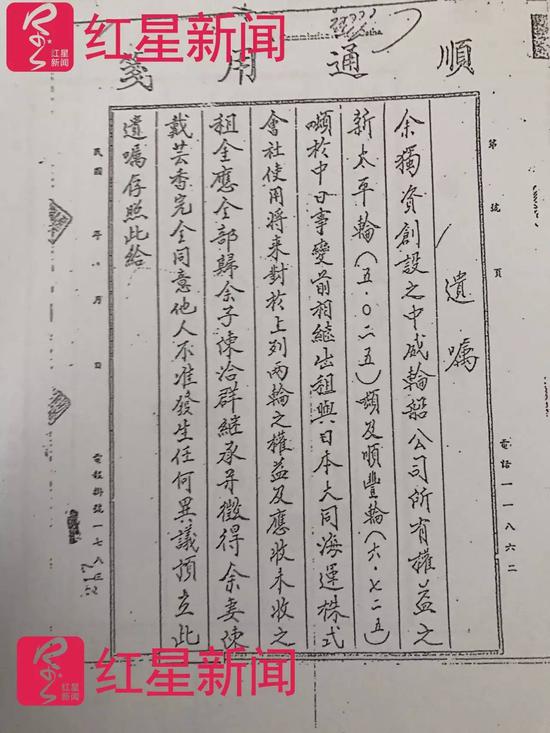 红星新闻
江星
新闻
順通用箋
第 號 頁
電話一一八六二
遺囑
余獨資創設之中威輪船公司所有權益之
新太平輪(五·〇二五)噸及順豐輪(六·七二五)
噸於中日事變前相繼出租與日本大同海運株式
會社使用將來對於上列兩輪之權益及應收未收之
租金應全部歸余子陳洽群繼承并徵得余妻陳
戴芸香完全同意他人不准發生任何異議預立此
遺囑存照此給
民國 年 月 日
電報掛號一七八三
红星新闻
红星
新闻